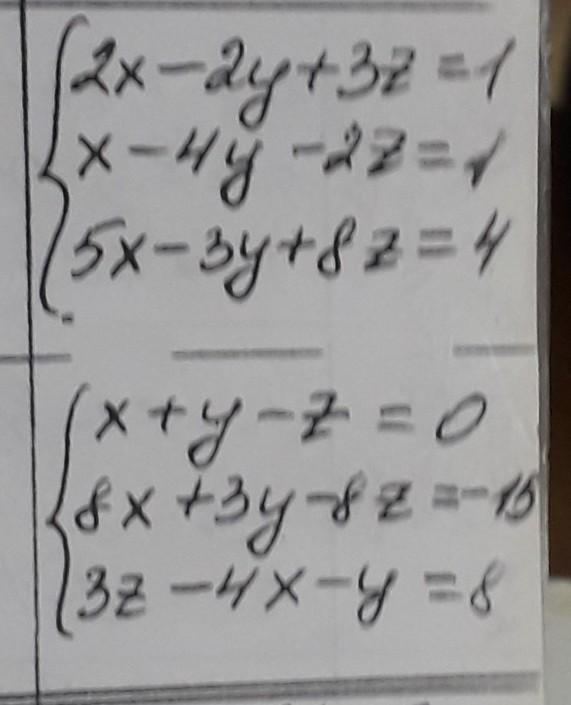 2x-2y+3z=1
x-4y-2z=1
5x-3y+8z=4
x+y-z=0
8x+3y-8z=-15
3z-4x-y=8